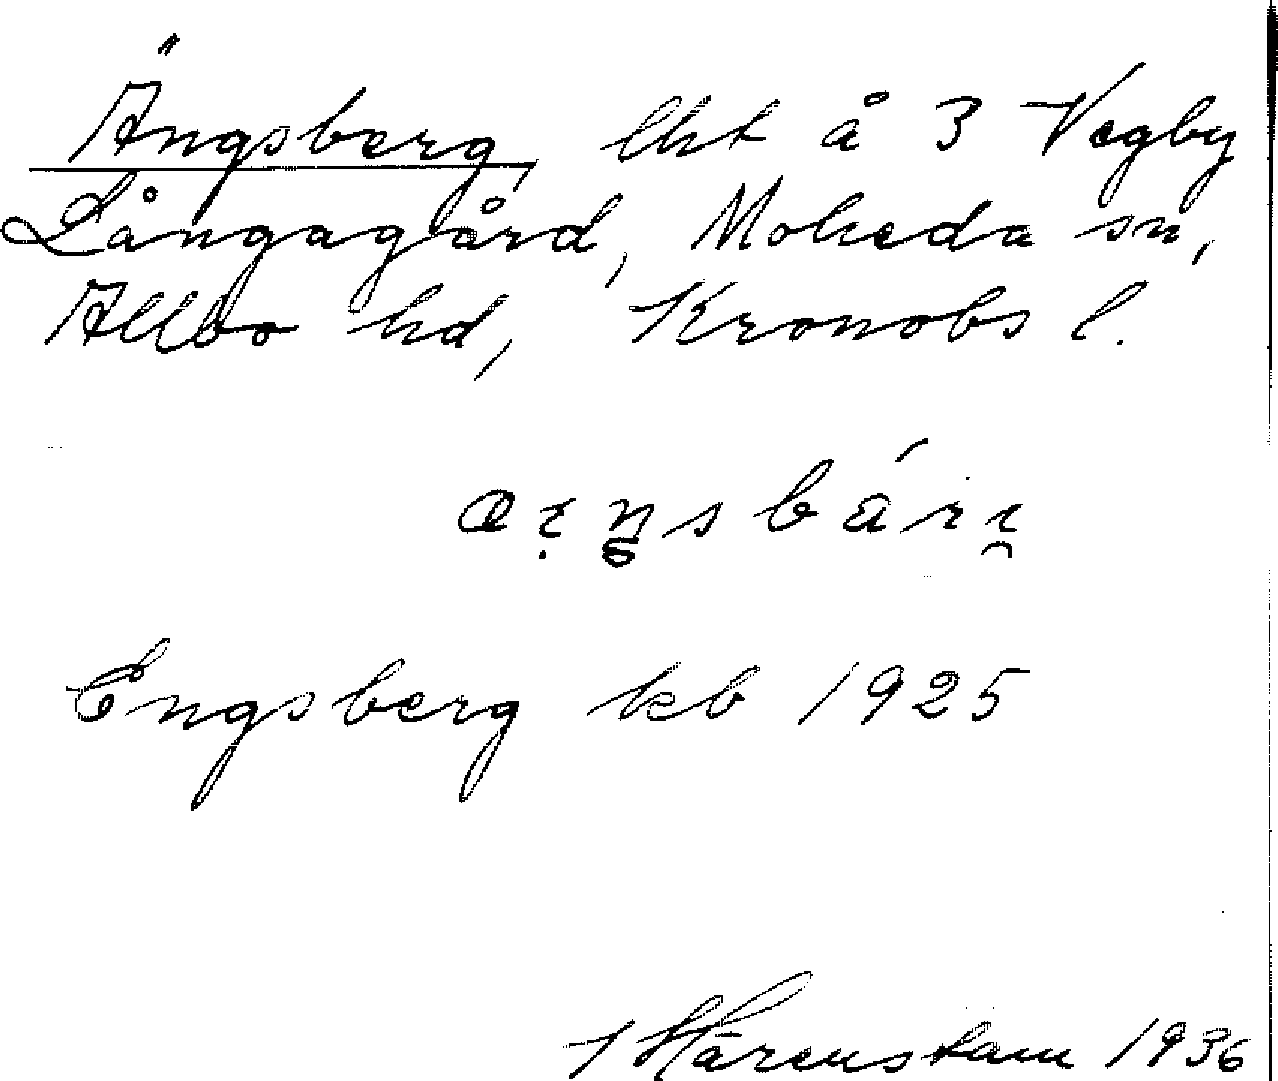 Ängsberg, lht å 3 Vegby
Långagård, Moheda sn,
Allbo hd, Kronobs l.
Engsberg kb 1925
Härenstam 1936